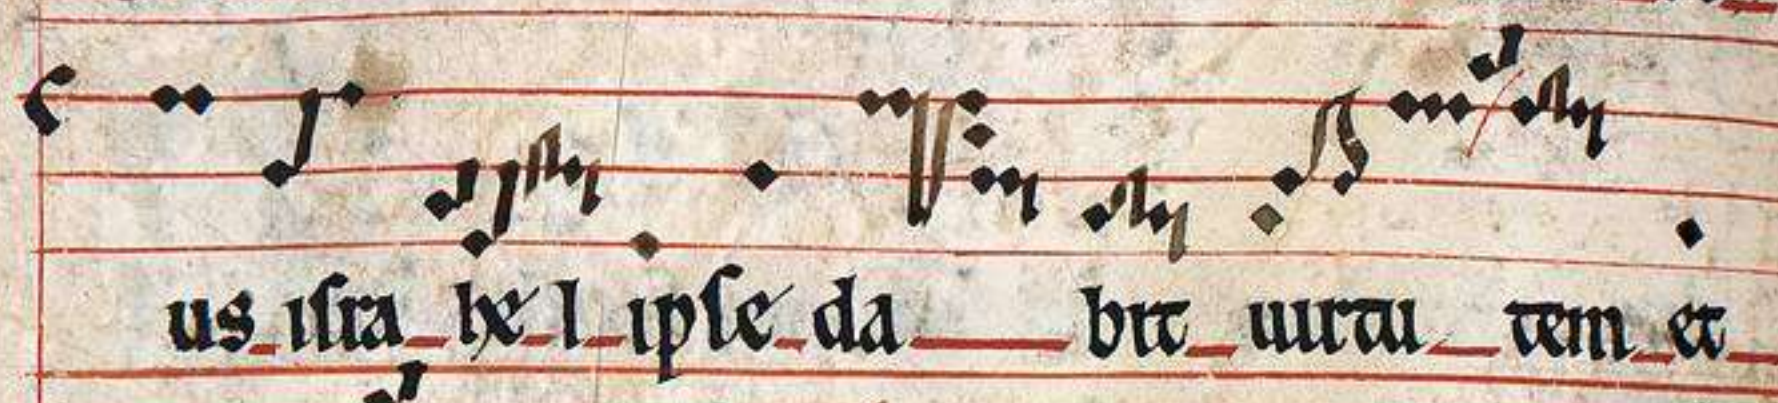 us iſra he l ipſe da bit uirtu tem et